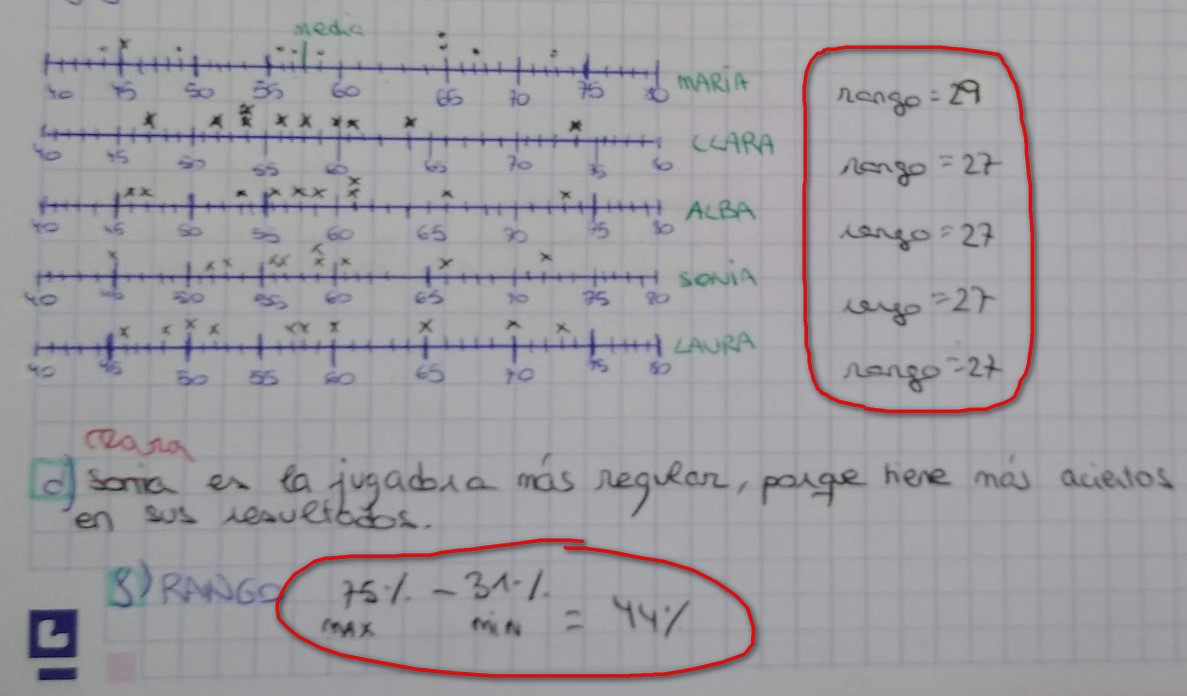 media
40 45 50 55 60 65 70 75 80 MARÍA rango = 29
40 45 50 55 60 65 70 75 80 CLARA rango = 27
40 45 50 55 60 65 70 75 80 ALBA rango = 27
40 45 50 55 60 65 70 75 80 SONIA rango = 27
40 45 50 55 60 65 70 75 80 LAURA rango = 27
Clara
d) Sonia es la jugadora más regular, porqe tiene más aciertos
en sus resultados.
g) RANGO 75% - 31% = 44%
MAX MIN